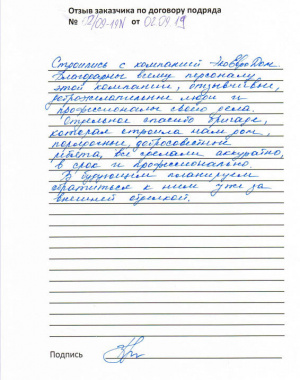 Отзыв заказчика по договору подряда
№ от 02.09.19
Строились с компанией Дом.
Благодарны всему персоналу
этой компании, отзывчивые,
доброжелательные люди и
профессионалы своего дела.
Отдельное спасибо бригаде,
которая строила нам дом,
добросовестные
ребята, всё сделали аккуратно,
в срок и профессионально.
В будущем планируем
обратиться к ним уже за
внешней отделкой.
Подпись